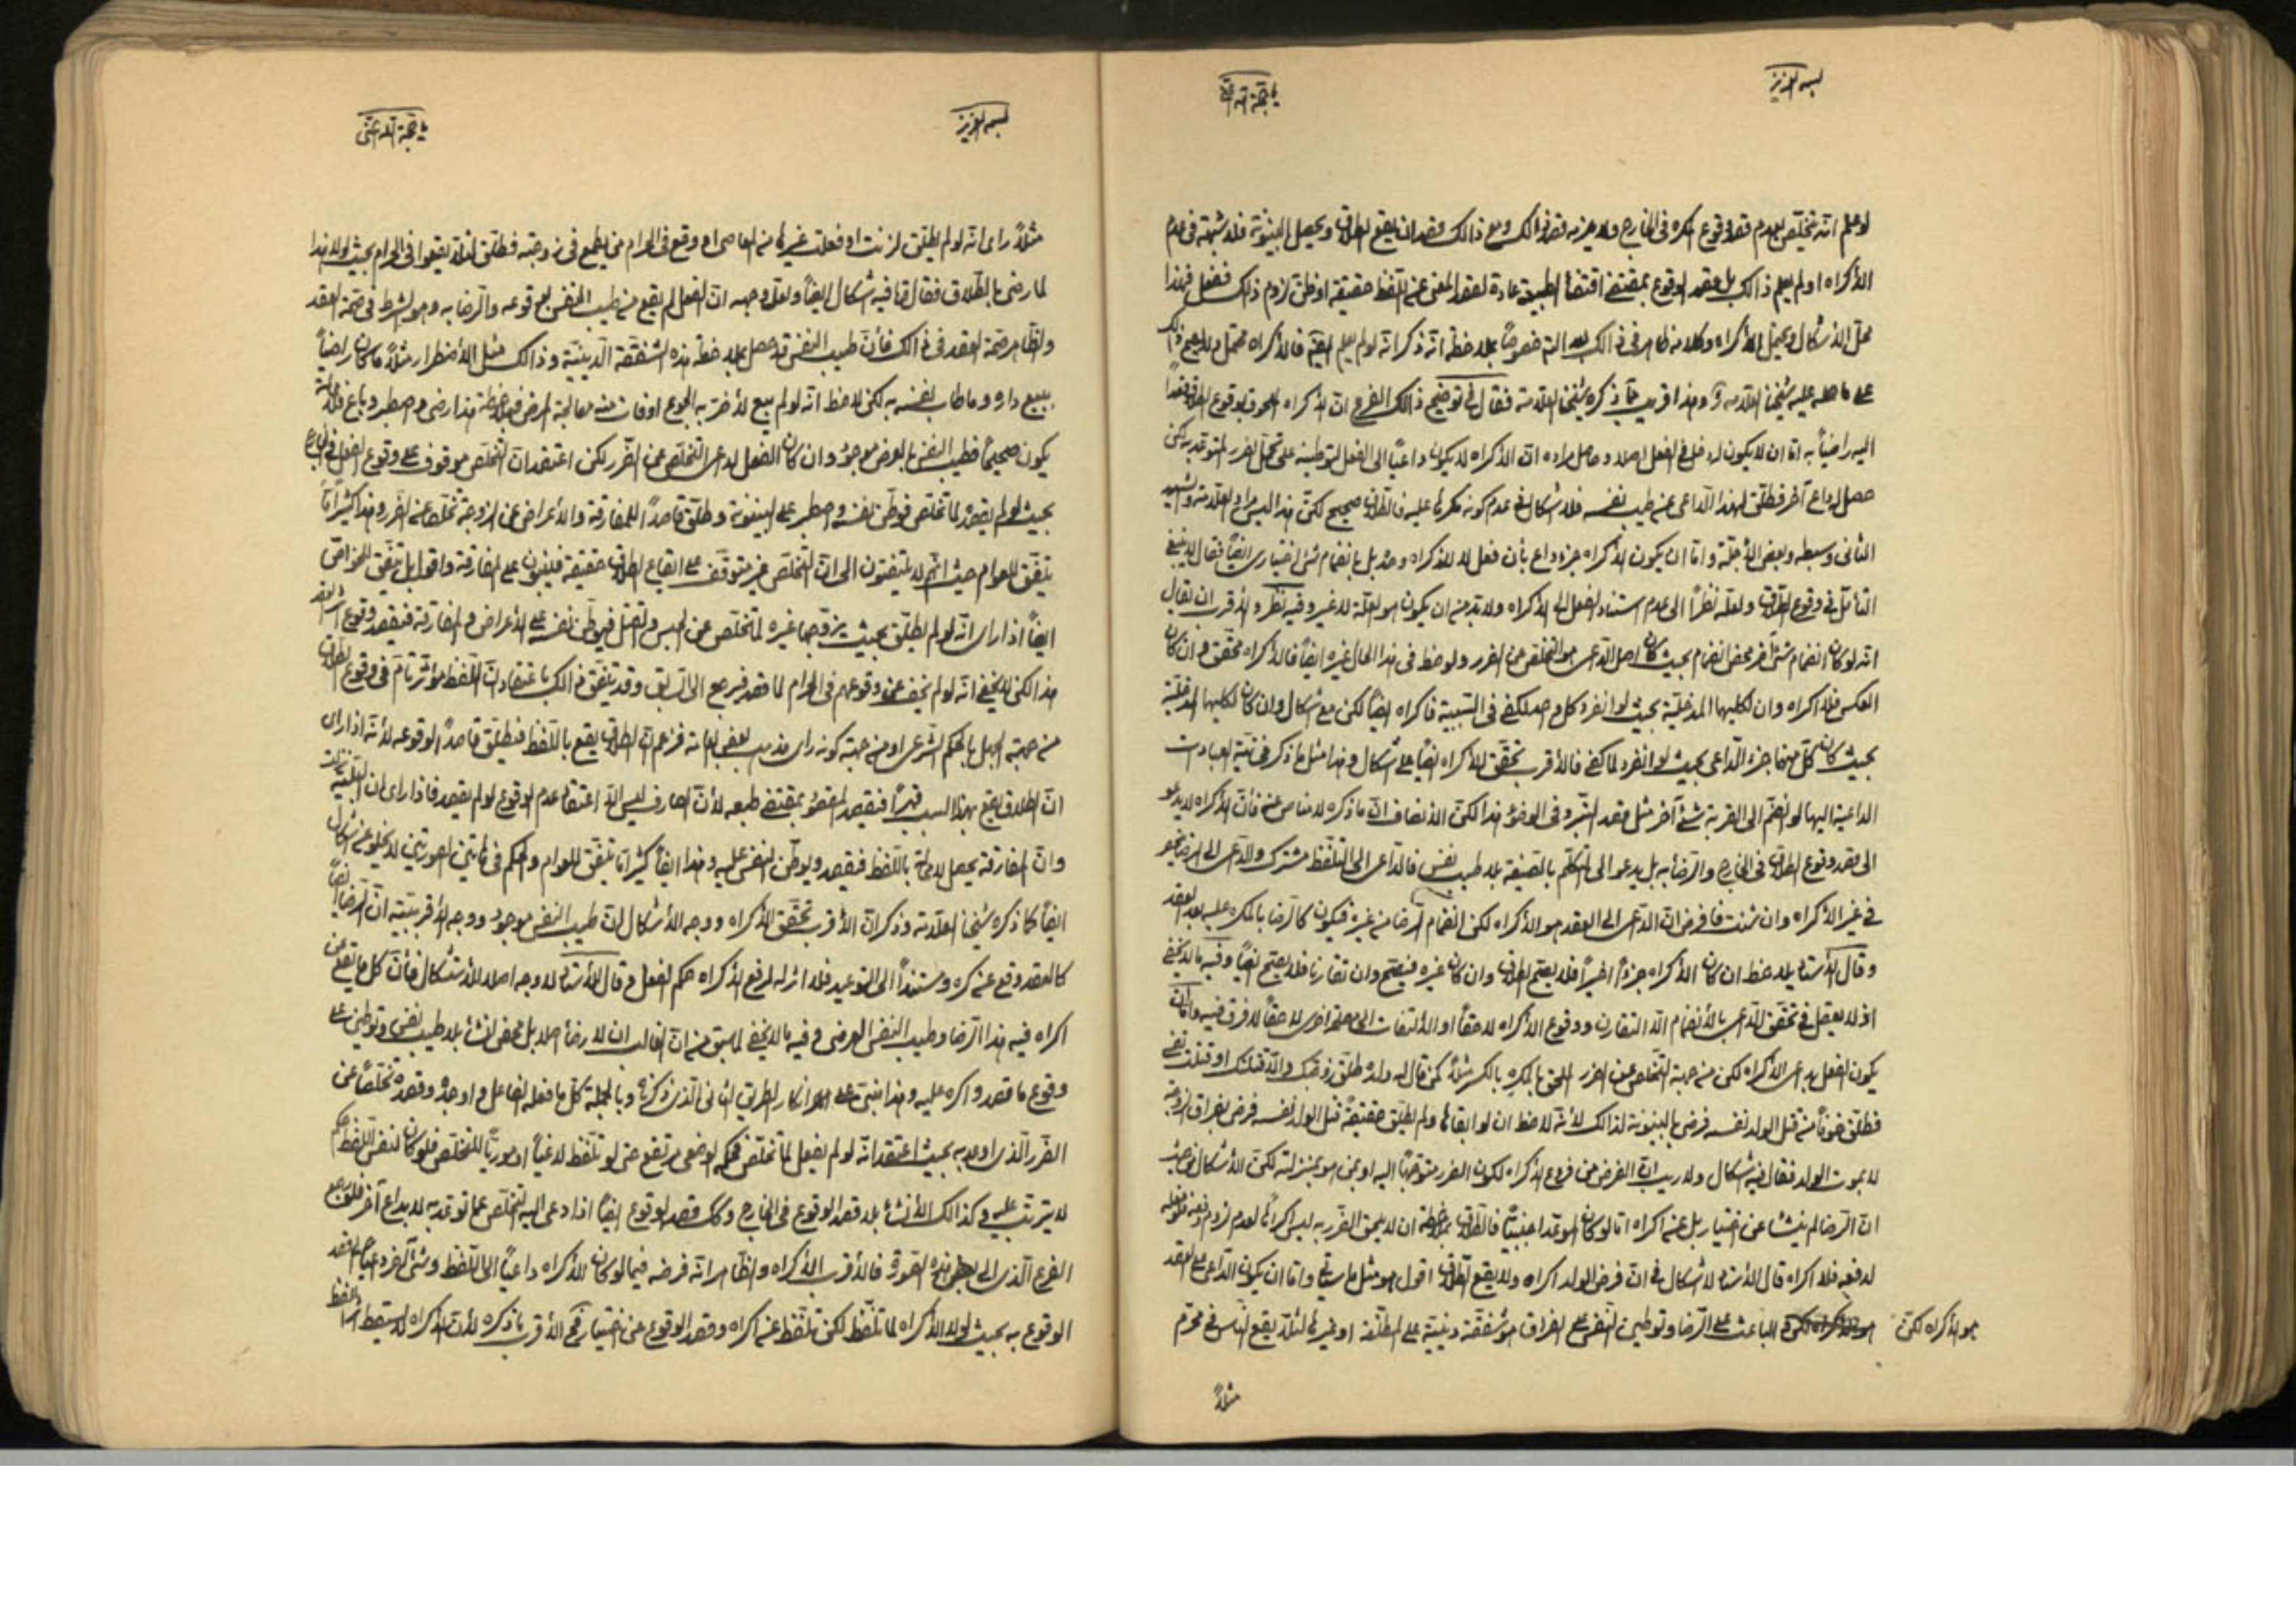 بسمه العزيز
لو علم انه يتخلص بعدم قصد وقوع المكره في الخارج ومع ذالك قصد ان يقع الطلاق ويحصل البينونة فلا شبهة في عدم
الاكراه او لم يعلم ذالك بل عقد الوقوع بمقتضى اقتضاء الطبيعة عادة لقصد المعنى عند التلفظ حقيقة او ظن لزوم ذالك ففعل فهذا
محل الاشكال ويحتمل الاكراه وكلامه ظاهر في ذالك خصوصاً بملاحظة انه ذكر انه لو لم يعلم فالاكراه محتمل
على ما حمله عليه شيخنا العلامة وهذا قريب مما ذكره شيخنا العلامة فقال في توضيح ذالك الفرع ان الاكراه الملحوق بوقوع الطلاق قصداً
اليه راضياً به اما ان لا يكون له دخل في الفعل اصلا وحاصل مراده ان الاكراه لا يكون داعياً الى الفعل لتوطينه على تحمل الضرر المتوعد به لكن
حصل له داع آخر فطلق لهذا الداعي عن طيب نفسه فلا اشكال في عدم كونه مكرها عليه فالطلاق صحيح لكن هذا ليس مراد العلامة والشهيد
الثاني وسبطه وبعض الاجلة واما ان يكون الاكراه جزء داع بأن فعل لا للاكراه وحده بل بانضمام شئ اختياري ايضاً فقال لا ينبغي
التأمل في وقوع الطلاق ولعله نظراً الى عدم استناد الفعل الى الاكراه ولا بد من ان يكون هو العلة لا غير وفيه نظر والاقرب ان يقال
انه لو كان انضمام شئ آخر محض انضمام بحيث كان اصل الداعي هو التخلص من الضرر ولوحظ في هذا الحال غيره ايضاً فالاكراه محقق وان كان
العكس فلا اكراه وان لكليهما المدخلية بحيث لو انفرد كل واحد لكفى في السببية فاكراه ايضاً لكن مع اشكال وان كان لكليهما المدخلية
بحيث كان كل منهما جزء الداعي بحيث لو انفرد لما كفى فالاقرب تحقق الاكراه ايضاً على اشكال وهذا مثل ما ذكر في نية العبادات
الداعية اليها لو انضم الى القربة شئ آخر مثل قصد التبرد في الوضوء هذا لكن الانصاف ان ما ذكره لا مناص عنه فأن الاكراه لا يدعو
الى قصد وقوع الطلاق في الخارج والرضا به بل يدعو الى التكلم بالصيغة بلا طيب نفس فالداعي الى التلفظ مشترك والداعي الى الرضا
في غير الاكراه وان شئت فافرض ان الداعي الى العقد هو الاكراه لكن انضمام الرضا من غيره فيكون كالرضا بالمكره عليه بعد العقد
وقال الاستاد يلاحظ ان كان الاكراه جزءاً اخيراً فلا يصح الطلاق وان كان غيره فيصح وان تقارنا فلا يصح ايضاً وفيه ما لا يخفى
اذ لا يعقل في تحقق الداعي بالانضمام الا التقارن ووقوع الاكراه لاحقاً او الالتفات الى لاحقاً لا فرق فيه واما ان
يكون الفعل بداعي الاكراه لكن من جهة التخلص عن الضرر الملحق بالمكرِه بالكسر مثلاً كمن قال له ولده طلق زوجتك والا قتلتك او قتلت نفسي
فطلق خوفاً من قتل الولد نفسه فرضي بالبينونة لذالك لانه لاحظ ان لو ابقاها ولم يطلق حقيقة قتل الولد نفسه فرضي بفراق الزوجة
لا بموت الولد فقال فيه اشكال ولا ريب ان الفرض من فروع الاكراه لكون الضرر متوجهاً اليه او بمن هو بمنزلته لكن الاشكال من حيث
ان الرضا لم ينشأ عن اختيار بل عن اكراه اما لو كان الموعد اجنبياً فالطلاق بملاحظة ان لا يلحق الضرر به ليس اكراهاً لعدم لزوم دفعه
لدفعه فلا اكراه قال الاستاد لا اشكال في ان فرض الولد اكراه ولا يقع الطلاق اقول هو مثل ما سيأتي واما ان يكون الداعي على العقد
هو الاكراه لكن الباعث على الرضا وتوطين النفس على الفراق هو شفقة دينية على المطلقة او غيرها لئلا يقع الناس في محرم
مثلاً
بسمه العزيز
يا حجة الله اغثني
مثلاً رأى انه لو لم يطلق لزنت او فعلت غيرها من المعاصي او وقع في الحرام من يطمع في زوجته فطلق لئلا يقعوا في الحرام بحيث لولا هذا
لما رضي بالطلاق فقال فيه اشكال ايضاً ولعل وجهه ان الفعل لم يقع من طيب النفس بوقوعه والرضا به وهو الشرط في صحة العقد
والظاهر صحة العقد في ذالك فأن طيب النفس قد حصل بملاحظة هذه الشفقة الدينية وذالك مثل الاضطرار مثلاً ما كان راضياً
ببيع داره وما طاب نفسه به لكن لاحظ انه لو لم يبع لأضر به الجوع او فات منه معالجة المرض فبملاحظة هذا رضي واصطبر وباع
يكون صحيحاً فطيب النفس بالعرض موجود وان كان الفعل لداعي التخلص عن الضرر لكن اعتقد ان التخلص موقوف على وقوع الفعل في الخارج
بحيث لو لم يقصد لما تخلص فوطن نفسه واصطبر على البينونة وطلق قاصداً للمفارقة والأعراض عن الزوجة تخلصاً عن الضرر وهذا كثيراً ما
يتفق للعوام حيث انهم لا يلتفتون الى ان التخلص غير متوقف على ايقاع الطلاق حقيقة فيبنون على المفارقة واقول بل يتفق للخواص
ايضاً اذا رأى انه لو لم يطلق بحيث يزوجها غيره لما تخلص عن الحبس والقتل فيوطن نفسه على الاعراض والمفارقة فيقصد وقوع
هذا لكن لا يخفى انه لو لم يخف عن وقوعهم في الحرام لما قصد فيرجع الى السابق وقد يتفق ذالك باعتقاد ان اللفظ مؤثر تام في وقوع الطلاق
من جهة الجهل بالحكم الشرعي او من جهة كونه رأى مذهب بعض العامة فزعم ان الطلاق يقع باللفظ فيطلق قاصداً لوقوعه لأنه اذا رأى
ان الطلاق يقع بهذا السبب قهراً فيقصد لمقصوده بمقتضى طبعه لأن الصارف ليس الا اعتقاد عدم الوقوع لو لم يقصد فاذا رأى ان
وان المفارقة يحصل لا محالة باللفظ فيقصد ويوطن النفس عليه وهذا ايضاً كثيراً ما يتفق للعوام والحكم في هاتين الصورتين لا يخلو عن اشكال
ايضاً كما ذكره شيخنا العلامة وذكر ان الأقرب تحقق الاكراه ووجه الأشكال ان طيب النفس موجود ووجه الأقربية ان الرضا
كالعقد وقع عن كره ومستنداً الى التوعيد فلا اثر له لرفع الاكراه حكم الفعل وقال الأستاد لا وجه اصلا للأستشكال فأن كل ما يقع عن
اكراه فيه هذا الرضا وطيب النفس العرضي وفيه ما لا يخفى لما سبق من ان الغالب ان لا رضا اصلا بل محض انشاء بلا طيب نفس وتوطين على
وقوع ما قصد واكره عليه وهذا مبني على انكار الطريق الثاني الذي ذكرناه وبالجملة كل ما فعله الفاعل واوجده وقصده تخلصاً عن
الضرر الذي اوعد به بحيث اعتقد انه لو لم يفعل لما تخلص فحكمه الوضعي مرتفع حتى لو تلفظ لاغياً او مورياً للتخلص فلو كان لنفس اللفظ حكم
لا يترتب عليه وكذالك الأنشاء بلا قصد الوقوع في الخارج وكك قصد الوقوع ايضاً اذا دعى اليه التخلص عما توعد به لا بداع آخر
الفرع الذي الى هذه الصورة فالأقرب الاكراه والظاهر انه فرضه فيما لو كان الاكراه داعياً الى اللفظ وشئ آخر داعياً لقصد
الوقوع به بحيث لولا الاكراه لما تلفظ لكن تلفظ عن اكراه وقصد الوقوع عن اختيار فح الأقرب ما ذكره لأن الاكراه يسقط اثر اللفظ